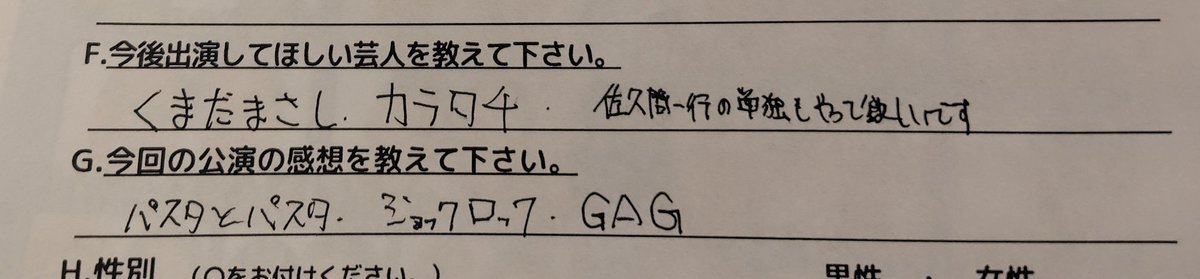 F.今後出演してほしい芸人を教えて下さい。
くまだまさし. カラタチ. 佐久間一行の単独もやって欲しいです
G.今回の公演の感想を教えて下さい。
パスタとパスタ. ジョックロック. GAG
H.性別 (〇をお付けください。) 男性 ・ 女性